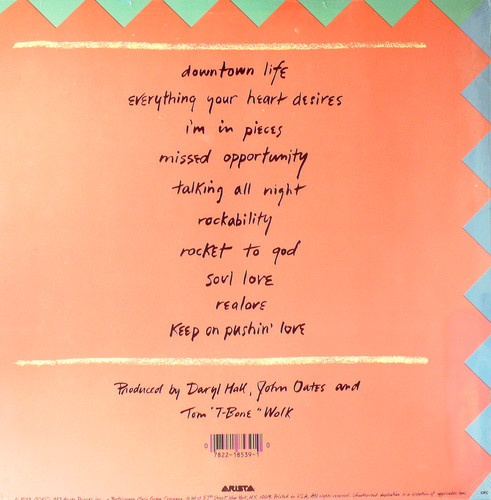 downtown life
everything your heart desires
i'm in pieces
missed opportunity
talking all night
rockability
rocket to god
soul love
realove
keep on pushin' love
Produced by Daryl Hall, John Oates and
Tom "T-Bone" Wolk
0 7822-18539-1 0
ARISTA